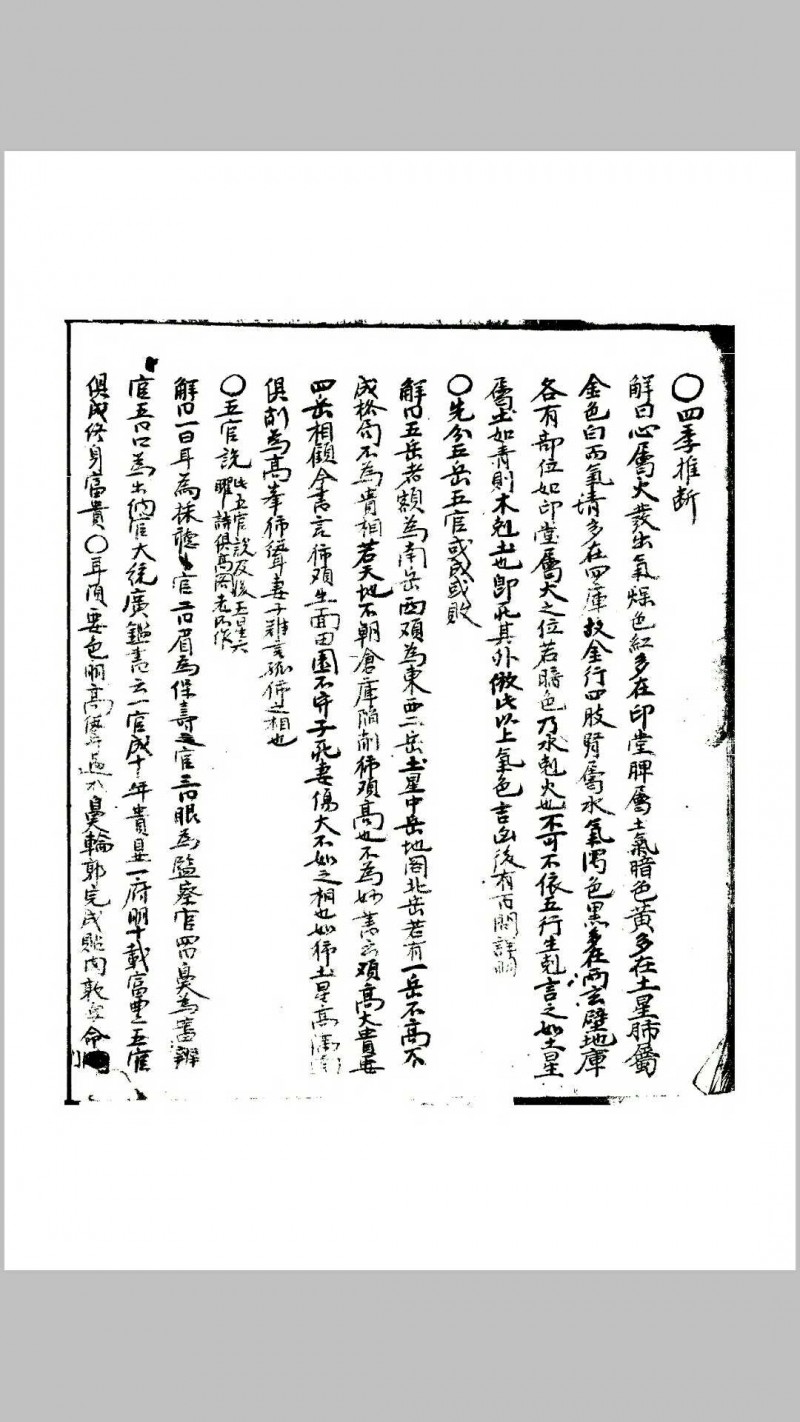 ○四季推断
解曰心屬火發出氣燥色紅多在印堂脾屬土氣暗色黃多在土星肺屬
金色白而氣清多在四庫故金行四肢腎屬水氣濁色黑多在兩玄壁地庫
各有部位如印堂屬火之位若暗色乃水剋火也不可不依五行生剋言之如土星
屬土如青則木剋土也即死其外倣此以上氣色吉凶後有百問詳明
○先分五岳五官或成或敗
解曰五岳者額為南岳两顴為東西二岳土星中岳地閣北岳若有一岳不高不
成格局不為貴相若天地不朝倉庫陷削獨顴高也不為妙書云顴高大貴要
四岳相顧全書言獨顴生面田園不守子死妻傷大不如之相也如獨土星高满
俱削為高峯獨聳妻子難言孤獨之相也
○五官說 此五官說及後五星六
曜詩俱高老所作
解曰一曰耳為採聽官二曰眉為保壽之官三曰眼為監察官四曰鼻為審辨
官五曰口為出納官大統廣鑑書云一官成十年貴顯一府明十載富豐五官
俱成終身富貴○耳須要色明高聳過於 輪郭完成貼肉敦厚命